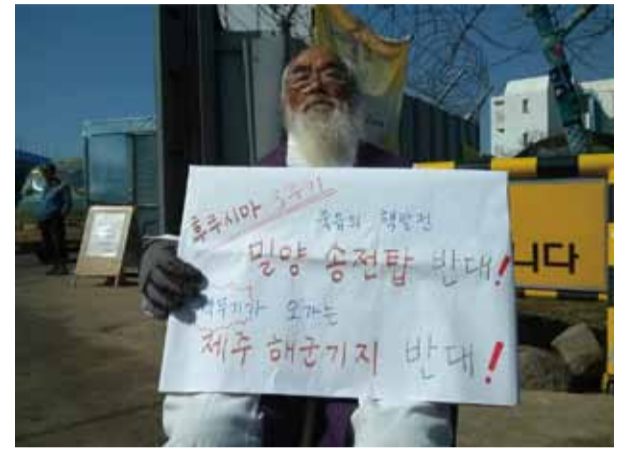 후쿠시마 3주기
죽음의 핵발전
밀양 송전탑 반대!
핵무기가 오가는
제주 해군기지 반대!
니다